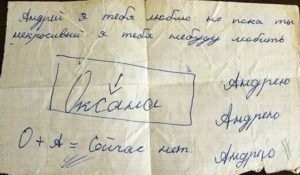 Андрей я тебя люблю но пока ты
некрасивый я тебя небуду любить
Оксана
Андрею
Андрею
О + А = Сойчас нет.
Андрею